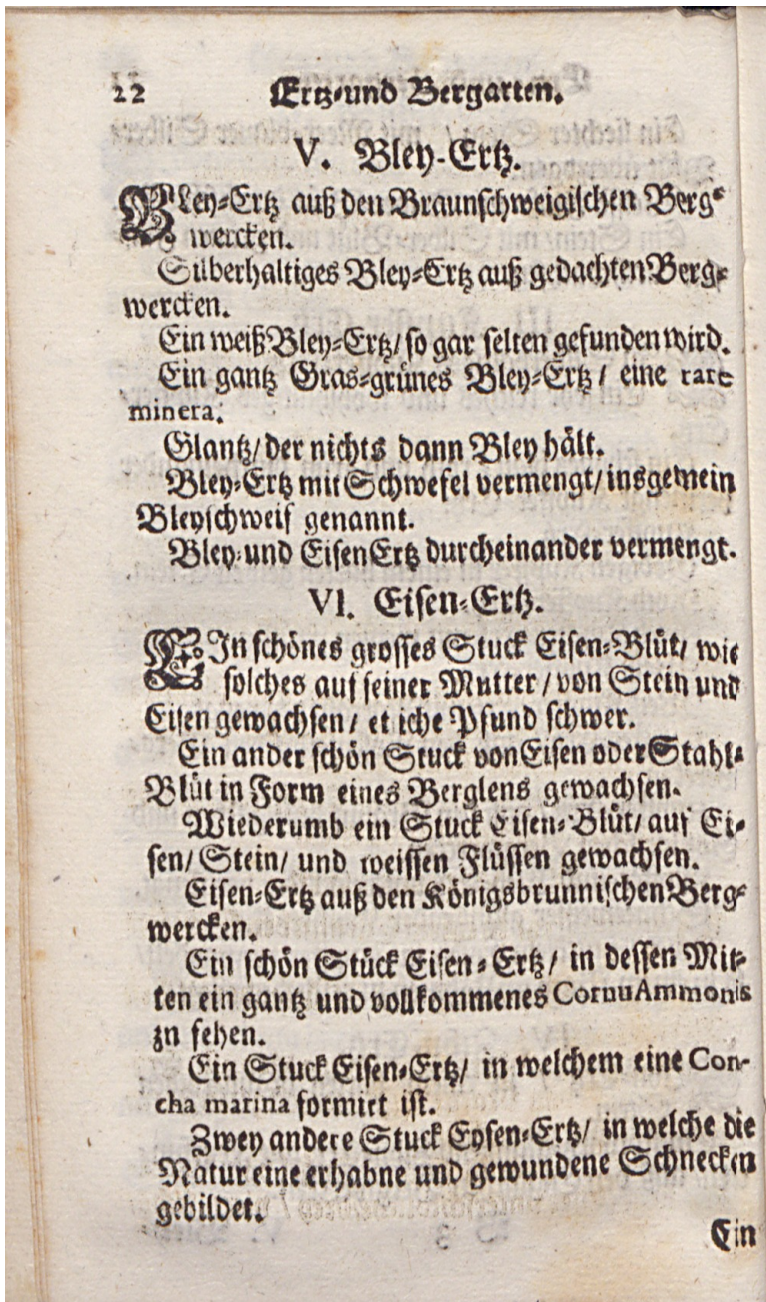 22 Ertz-und Bergarten.
V. Bley-Ertz.
BLey-Ertz auß den Braunschweigischen Berg-
wercken.
Silberhaltiges Bley-Ertz auß gedachten Berg-
wercken.
Ein weiß Bley-Ertz/ so gar selten gefunden wird.
Ein gantz Gras-grünes Bley-Ertz / eine rare
minera.
Glantz/ der nichts dann Bley hält.
Bley-Ertz mit Schwefel vermengt/ insgemein
Bleyschweif genannt.
Bley-und Eisen Ertz durcheinander vermengt.
VI. Eisen-Ertz.
EIn schönes grosses Stuck Eisen-Blüt/ wie
solches auf seiner Mutter / von Stein und
Eisen gewachsen / etliche Pfund schwer.
Ein ander schön Stuck von Eisen oder Stahl-
Blüt in Form eines Berglens gewachsen.
Wiederumb ein Stuck Eisen-Blüt/ auf Ei-
sen/ Stein/ und weissen Flüssen gewachsen.
Eisen-Ertz auß den Königsbrunnischen Berg-
wercken.
Ein schön Stück Eisen-Ertz/ in dessen Mit-
ten ein gantz und vollkommenes Cornu Ammonis
zu sehen.
Ein Stuck Eisen-Ertz/ in welchem eine Con-
cha marina formirt ist.
Zwey andere Stuck Eysen-Ertz/ in welche die
Natur eine erhabne und gewundene Schnecken
gebildet.
Ein